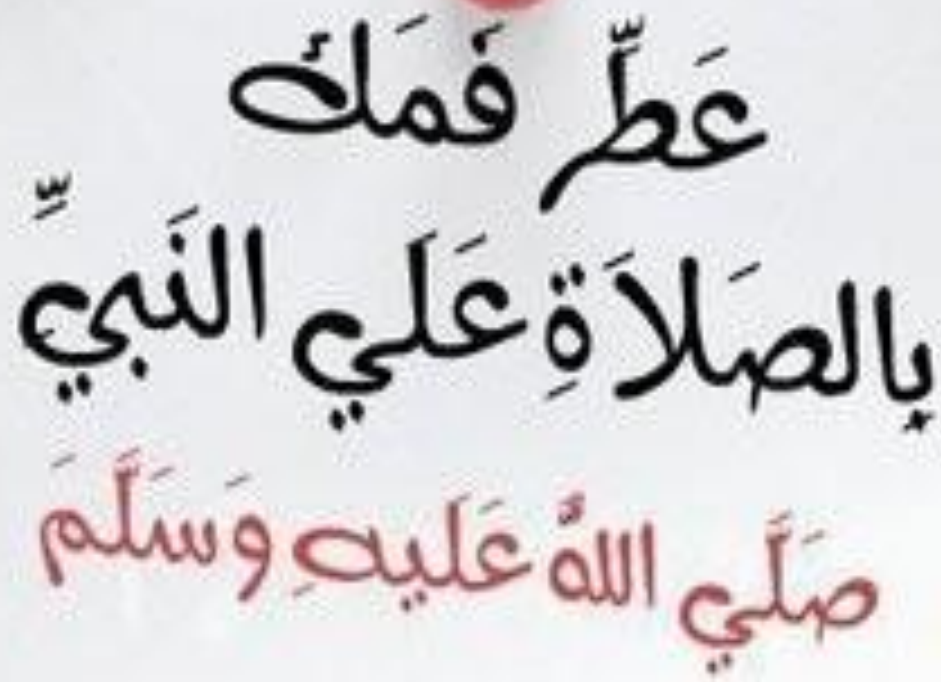 عَطِّر فَمَك
بِالصَلاَةِ عَلَي النَبيِّ
صَلَّي اللهُ عَلَيهِ وَسَلَّمَ